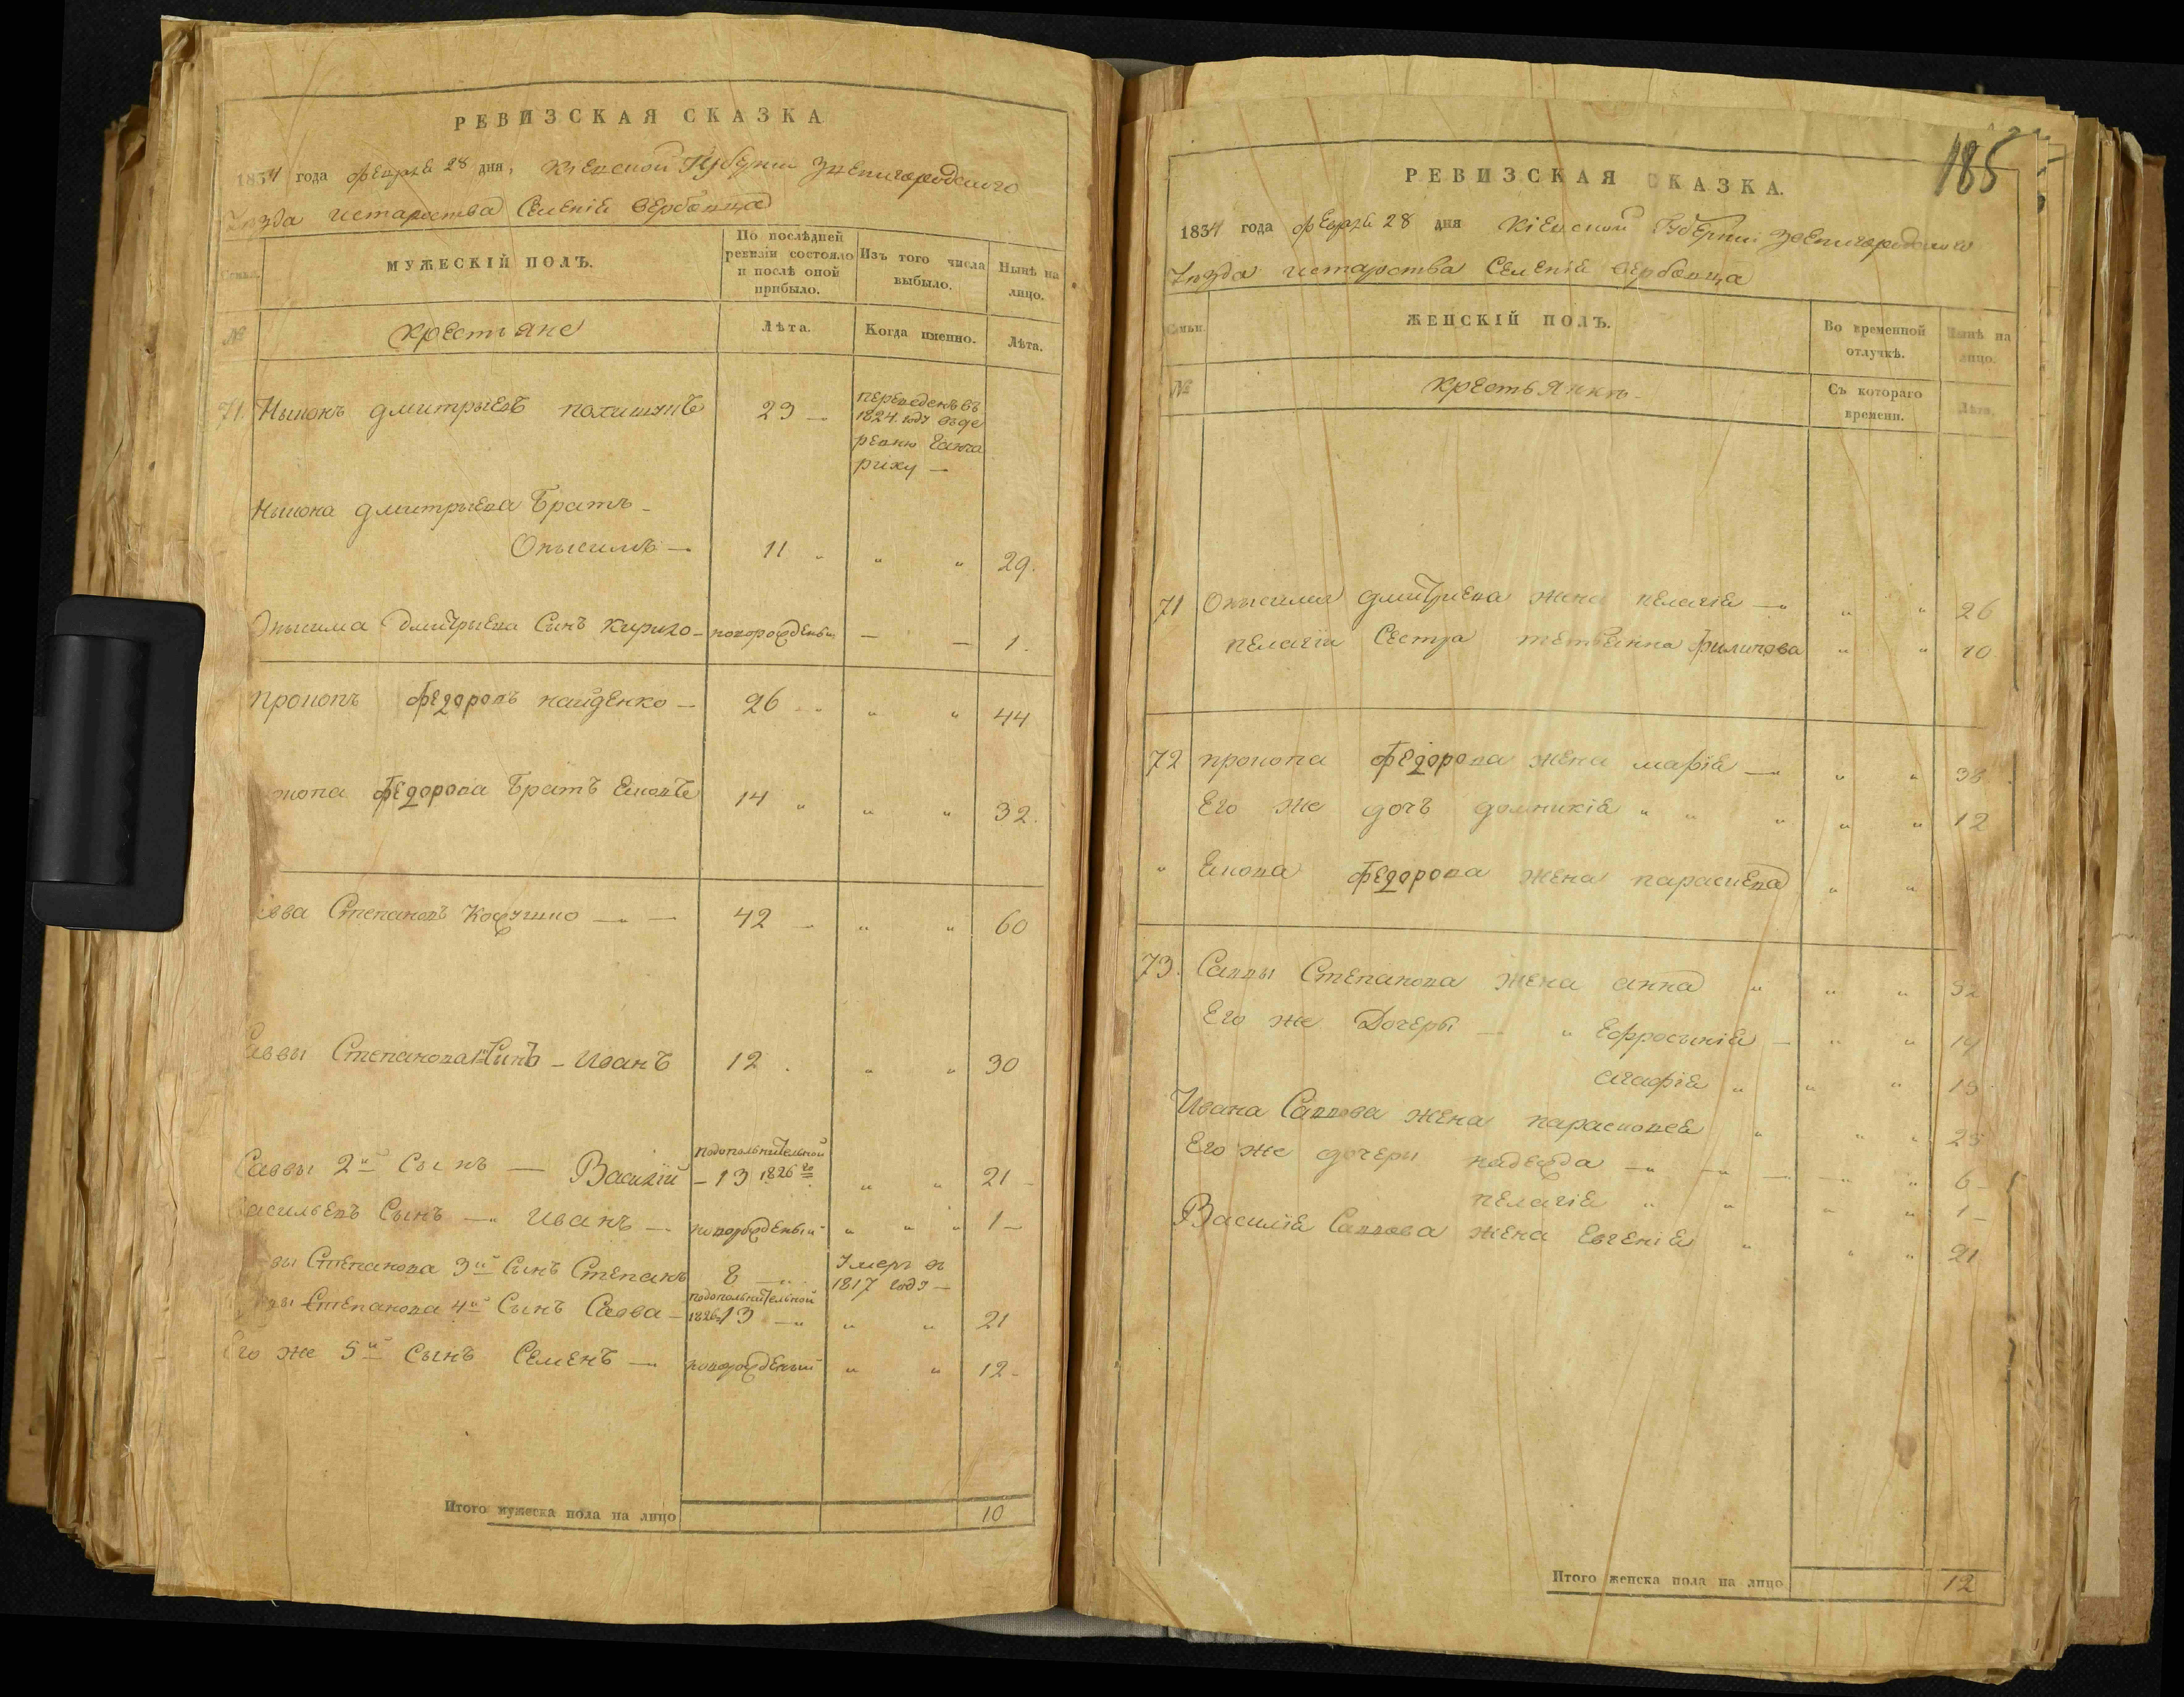 РЕВИЗСКАЯ СКАЗКА
1834 года февраля 28 дня, Кіевской Губерніи Звенигородского
Уѣзда истароства Селенія Вербовца
Семьи.
МУЖЕСКІЙ ПОЛЪ.
По послѣдней ревизіи состояло и послѣ оной прибыло.
Изъ того числа выбыло.
Нынѣ на лицо.
№
Крестьяне
Лѣта.
Когда именно.
Лѣта.
71. дмитрыевъ 23 — переведенъ въ
1824. году въ де
ревню
риху —
дмитрыева Братъ —
Онысимъ — 11 „ „ „ 29.
Онысима Дмитрыева Сынъ Кирило — новорожденый — — 1.
прокопъ федоровъ найденко — 26 „ „ „ 44
копа федорова Братъ 14 „ „ „ 32.
авва Степановъ — — 42 — „ „ 60
аввы Степанова Сынъ — Иванъ 12 . „ „ 30
подополнительной
Саввы 2й Сынъ — Василій — 13 1826го „ „ 21 —
асильевъ Сынъ — Иванъ — новорожденый „ „ „ 1 —
вы Степанова 3й Сынъ Степанъ 8 — Умеръ в
1817 году —
подополнительной
вы Степанова 4й Сынъ Савва — 1826 13 — „ „ 21
Его же 5й Сынъ Семенъ — новорожденый „ „ 12 —
Итого мужеска пола на лицо 10
185
РЕВИЗСКАЯ СКАЗКА.
1834 года февраля 28 дня Кіевской Губерніи Звенигородского
Уѣзда истароства Селенія Вербовца
Семьи.
ЖЕНСКІЙ ПОЛЪ.
Во временной отлучкѣ.
Нынѣ на лицо.
№
Крестьянкъ
Съ котораго времени.
Лѣта.
71 Онысима дмитриева жена пелагія — „ „ „ 26
пелагіи Сестра Филипова „ „ 10
72 прокопа федорова жена марія — „ „ „ 38
Его же дочъ домникія „ „ „ „ „ 12
„ федорова жена параскева „ „
73. Саввы Степанова жена анна „ „ „ 52
Его же Дочеры — „ Ефросинія — „ „ 19
агафія „ „ „ 15
Ивана Саввова жена парасковея „ „ „ 25
Его же дочеры надежда — „ — „ — — „ „ 6 —
пелагія „ „ „ „ 1 —
Василія Саввова жена Евгенія „ „ „ 21
Итого женска пола на лицо 12